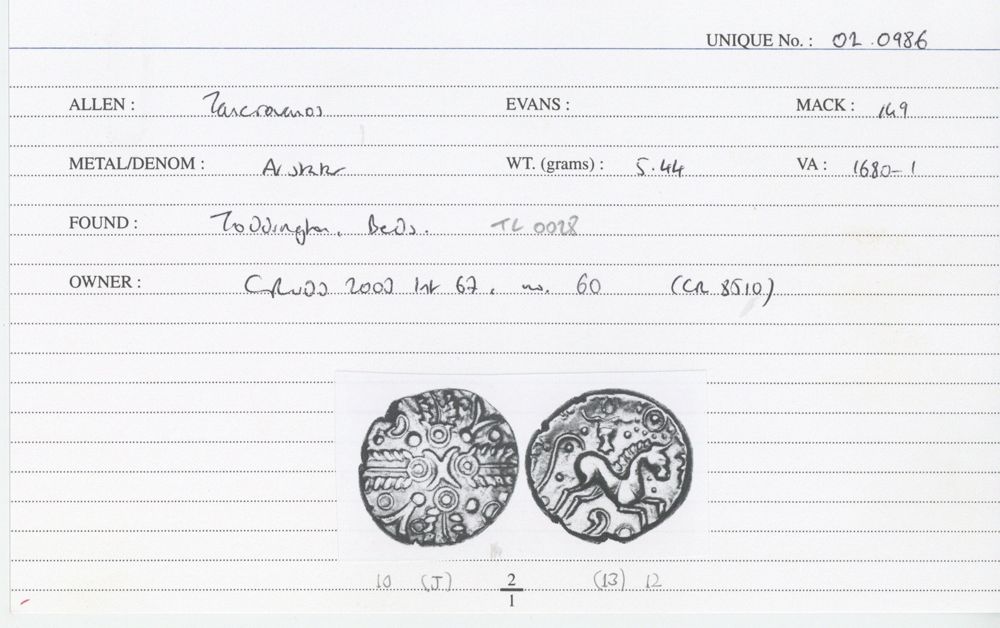 UNIQUE No. : 02.0986
ALLEN : Tasciovanos EVANS : MACK : 149
METAL/DENOM : AV stater WT. (grams) : 5.44 VA : 1680-1
FOUND : Toddington, Beds. TL 0028
OWNER : CR 2002 lst 67, no. 60 (CR 8510)
10 (J) 2 (13) 12
1